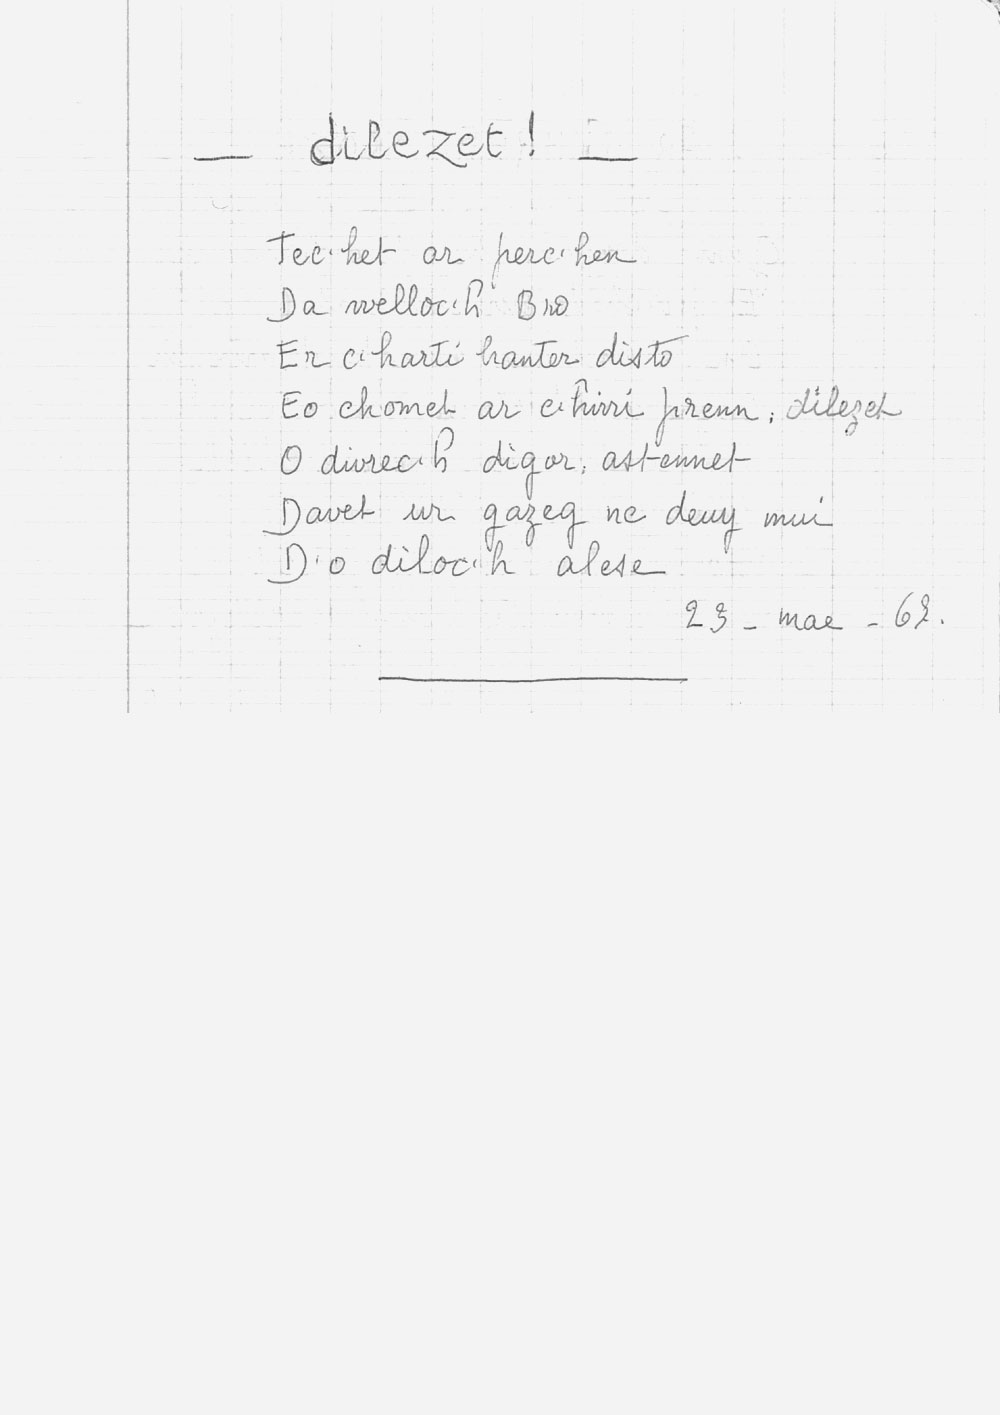 — dilezet ! —
Tec'het ar perc'hen
Da welloc'h Bro
Er c'harti hanter disto
Eo chomet ar c'hirri prenn, dilezet
O divrec'h digor, astennet
Davet ur gazeg ne deuy mui
D'o diloc'h alese
23 - mae - 62.